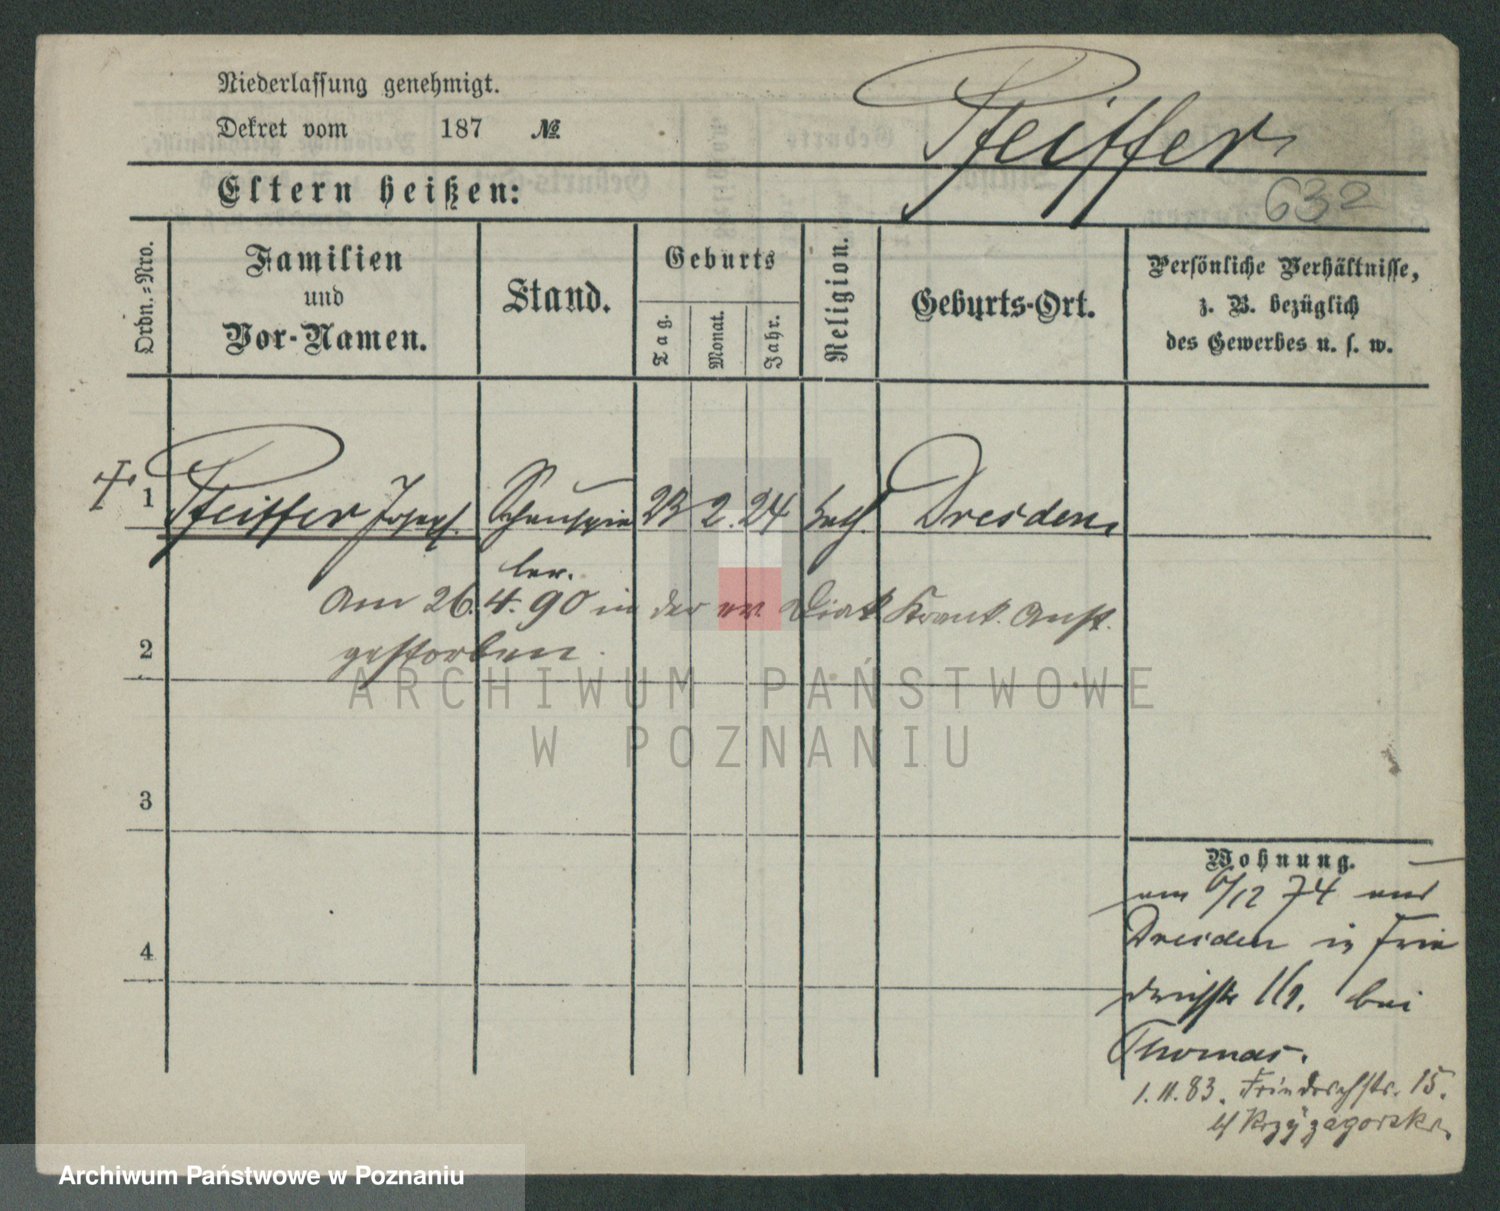 Niederlassung genehmigt.
Pfeiffer
Dekret vom 187 №
Eltern heißen:
632
Ordn.-Nro.
Familien
und
Vor-Namen.
Stand.
Geburts
Tag.
Monat.
Jahr.
Religion.
Geburts-Ort.
Persönliche Verhältnisse,
z. B. bezüglich
des Gewerbes u. s. w.
1 Pfeiffer Josef. Schauspie 23 2. 24 kath. Dresden
ler.
Am 26.4.90 in der ev. Diak Krank. Anst.
2 gestorben.
ARCHIWUM PAŃSTWOWE
W POZNANIU
3
Wohnung.
am 6/12 74 aus
4
Dresden in Frie
drichstr bei
Thomas.
1.11.83. Friedrichstr. 15.
Krzyżagorska
Archiwum Państwowe w Poznaniu